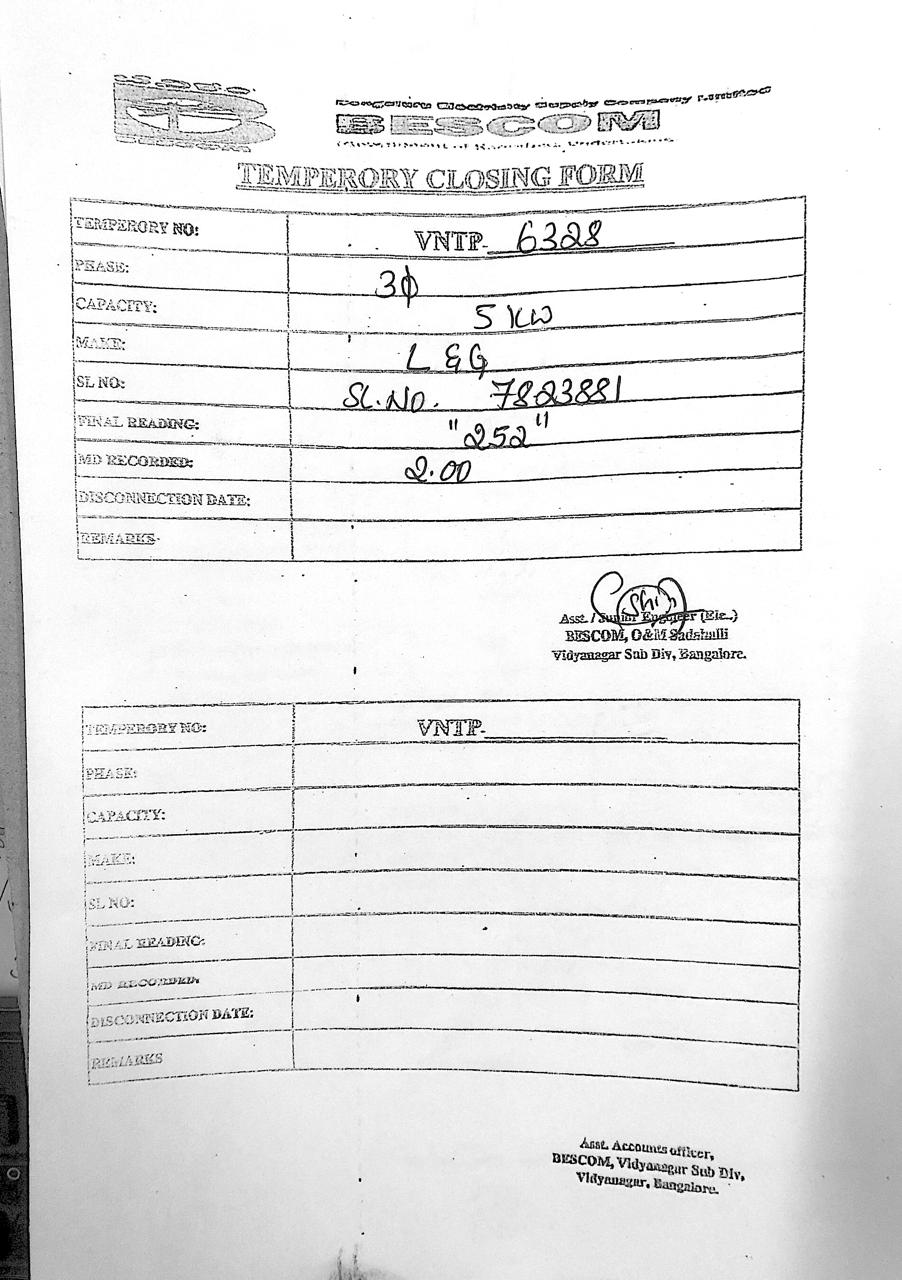 Bangalore Electricity Supply Company Limited
BESCOM
TEMPERORY CLOSING FORM
TEMPERORY NO: VNTP- 6328
PHASE: 3ф
CAPACITY: 5 KW
MAKE: L & G
SL NO: SL.NO. 7823881
FINAL READING: "252"
MD RECORDED: 2.00
DISCONNECTION DATE:
REMARKS
Asst. / Junior Engineer (Ele..)
BESCOM, O&M Sadahalli
Vidyanagar Sub Div, Bangalore.
TEMPERORY NO: VNTP-
PHASE:
CAPACITY:
MAKE:
SL NO:
FINAL READING:
MD RECORDED:
DISCONNECTION DATE:
REMARKS
Asst. Accounts officer,
BESCOM, Vidyanagar Sub Div,
Vidyanagar, Bangalore.